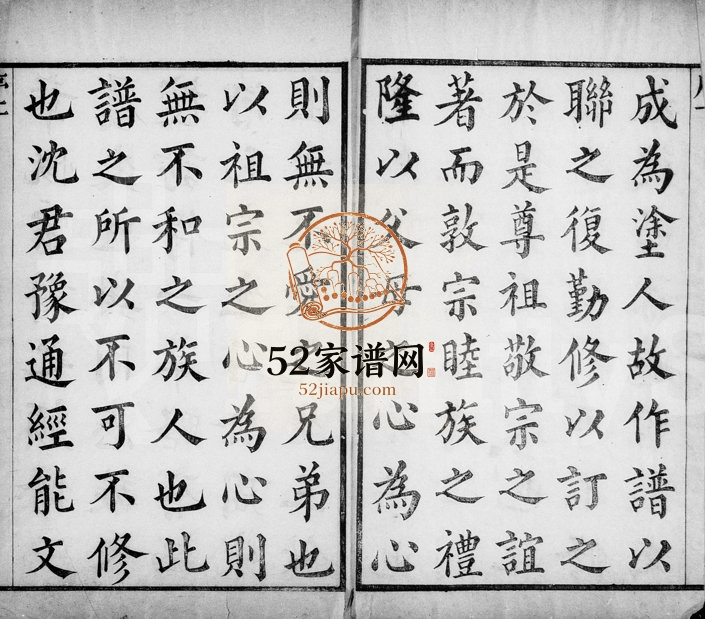 成為塗人故作譜以
聯之復勤修以訂之
於是尊祖敬宗之誼
著而敦宗睦族之禮
隆以父母之心為心
則無不愛之兄弟也
以祖宗之心為心則
無不和之族人也此
譜之所以不可不修
也沈君豫通經能文
52家谱网
52jiapu.com